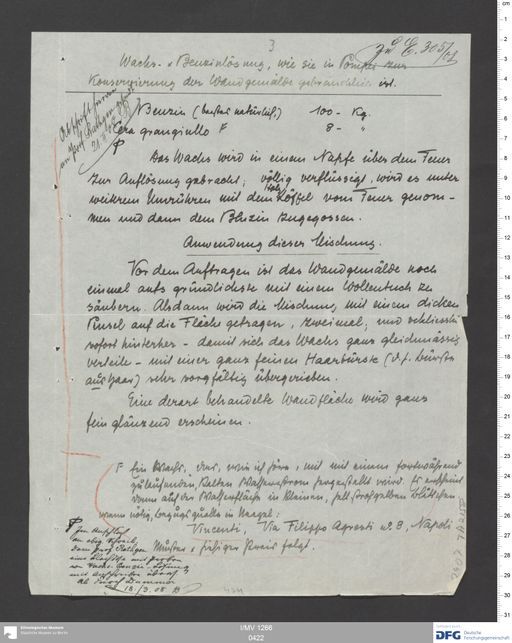 3
Zu E. 305/08
Wachs- u Benzinlösung, wie sie in Pompei zur
Konservierung der Wandgemälde gebräuchlich ist.
Abschrift
an Prof. Rathgen
Benzin (bestes natürlich.) 100 - Kg.
Cera grangiullo F 8 - "
Das Wachs wird in einem Napfe über dem Feuer
zur Auflösung gebracht; völlig verflüssigt, wird es unter
weiterem Umrühren mit dem Holz Löffel vom Feuer genom-
men und dann dem Benzin zugegossen.
Anwendung dieser Mischung.
Vor dem Auftragen ist das Wandgemälde noch
einmal aufs gründlichste mit einem Wollentuch zu
säubern. Alsdann wird die Mischung mit einem dicken
Pinsel auf die Fläche getragen, zweimal, und schliesslich
sofort hinterher - damit sich das Wachs ganz gleichmässig
verteile - mit einer ganz feinen Haarbürste (d.h. Bürste
aus Haar) sehr sorgfältig übergerieben.
Eine derart behandelte Wandfläche wird ganz
fein glänzend erscheinen.
F Ein Wachs, das, wie ich höre, mit einem fortwährend
kalten Wasserstrom hergestellt wird. Es erscheint
dann auf der Wasserfläche in kleinen, hell strohgelben Blättchen.
wenn nötig, Bezugsquelle in Neapel:
Vincenti, Via Filippo Agresti No 8, Napoli
Muster u hiesiger Preis folgt.
18./3. 08
I/MV 1266
0422
Ethnologisches Museum
Staatliche Museen zu Berlin
DFG Deutsche
Forschungsgemeinschaft